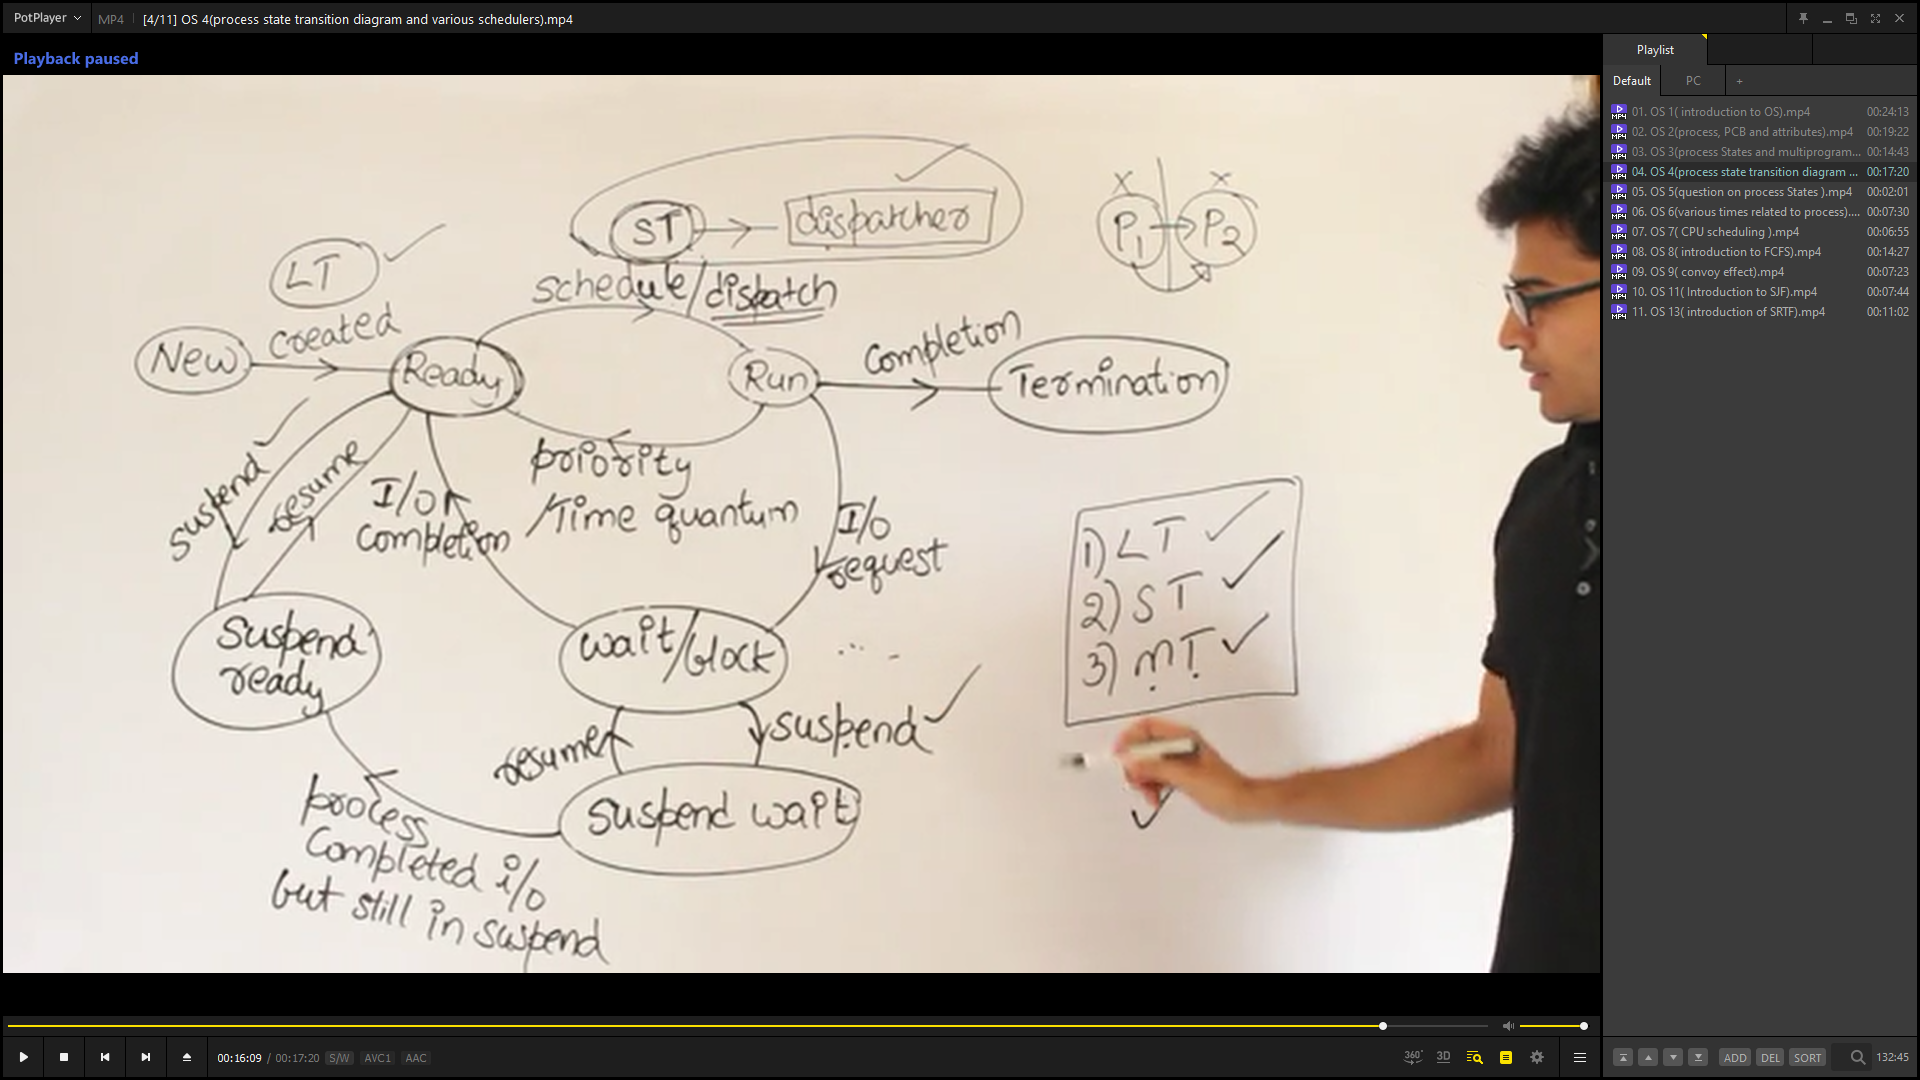 PotPlayer
MP4
[4/11] OS 4(process state transition diagram and various schedulers).mp4
Playback paused
ST
dispatcher
P1
P2
LT
schedule/dispatch
New
created
Ready
Run
Completion
Termination
suspend
resume
I/O
Completion
priority
/Time quantum
I/O
request
1) LT
2) ST
3) MT
Suspend
ready
wait/block
resume
suspend
suspend wait
process
Completed i/o
but still in suspend
Playlist
Default
PC
+
01. OS 1( introduction to OS).mp4 00:24:13
02. OS 2(process, PCB and attributes).mp4 00:19:22
03. OS 3(process States and multiprogram... 00:14:43
04. OS 4(process state transition diagram ... 00:17:20
05. OS 5(question on process States ).mp4 00:02:01
06. OS 6(various times related to process).... 00:07:30
07. OS 7( CPU scheduling ).mp4 00:06:55
08. OS 8( introduction to FCFS).mp4 00:14:27
09. OS 9( convoy effect).mp4 00:07:23
10. OS 11( Introduction to SJF).mp4 00:07:44
11. OS 13( introduction of SRTF).mp4 00:11:02
00:16:09 / 00:17:20 S/W AVC1 AAC
360° 3D
ADD DEL SORT 132:45